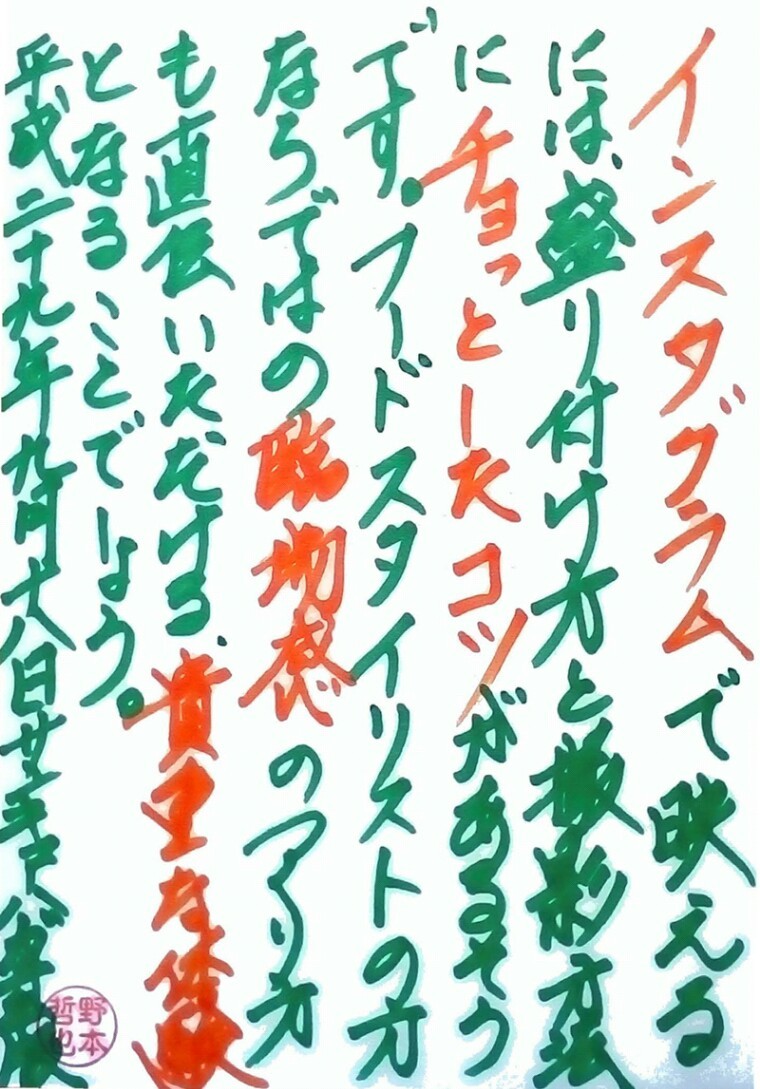 インスタグラムで映える
には、盛り付け方と撮影方法
にチョっとしたコツがあるそう
です。フードスタイリストの方
ならではの臨場感のつくり方
も直伝いただける、貴重な体験
となることでしょう。
平成二十九年九月十八日
野本哲也